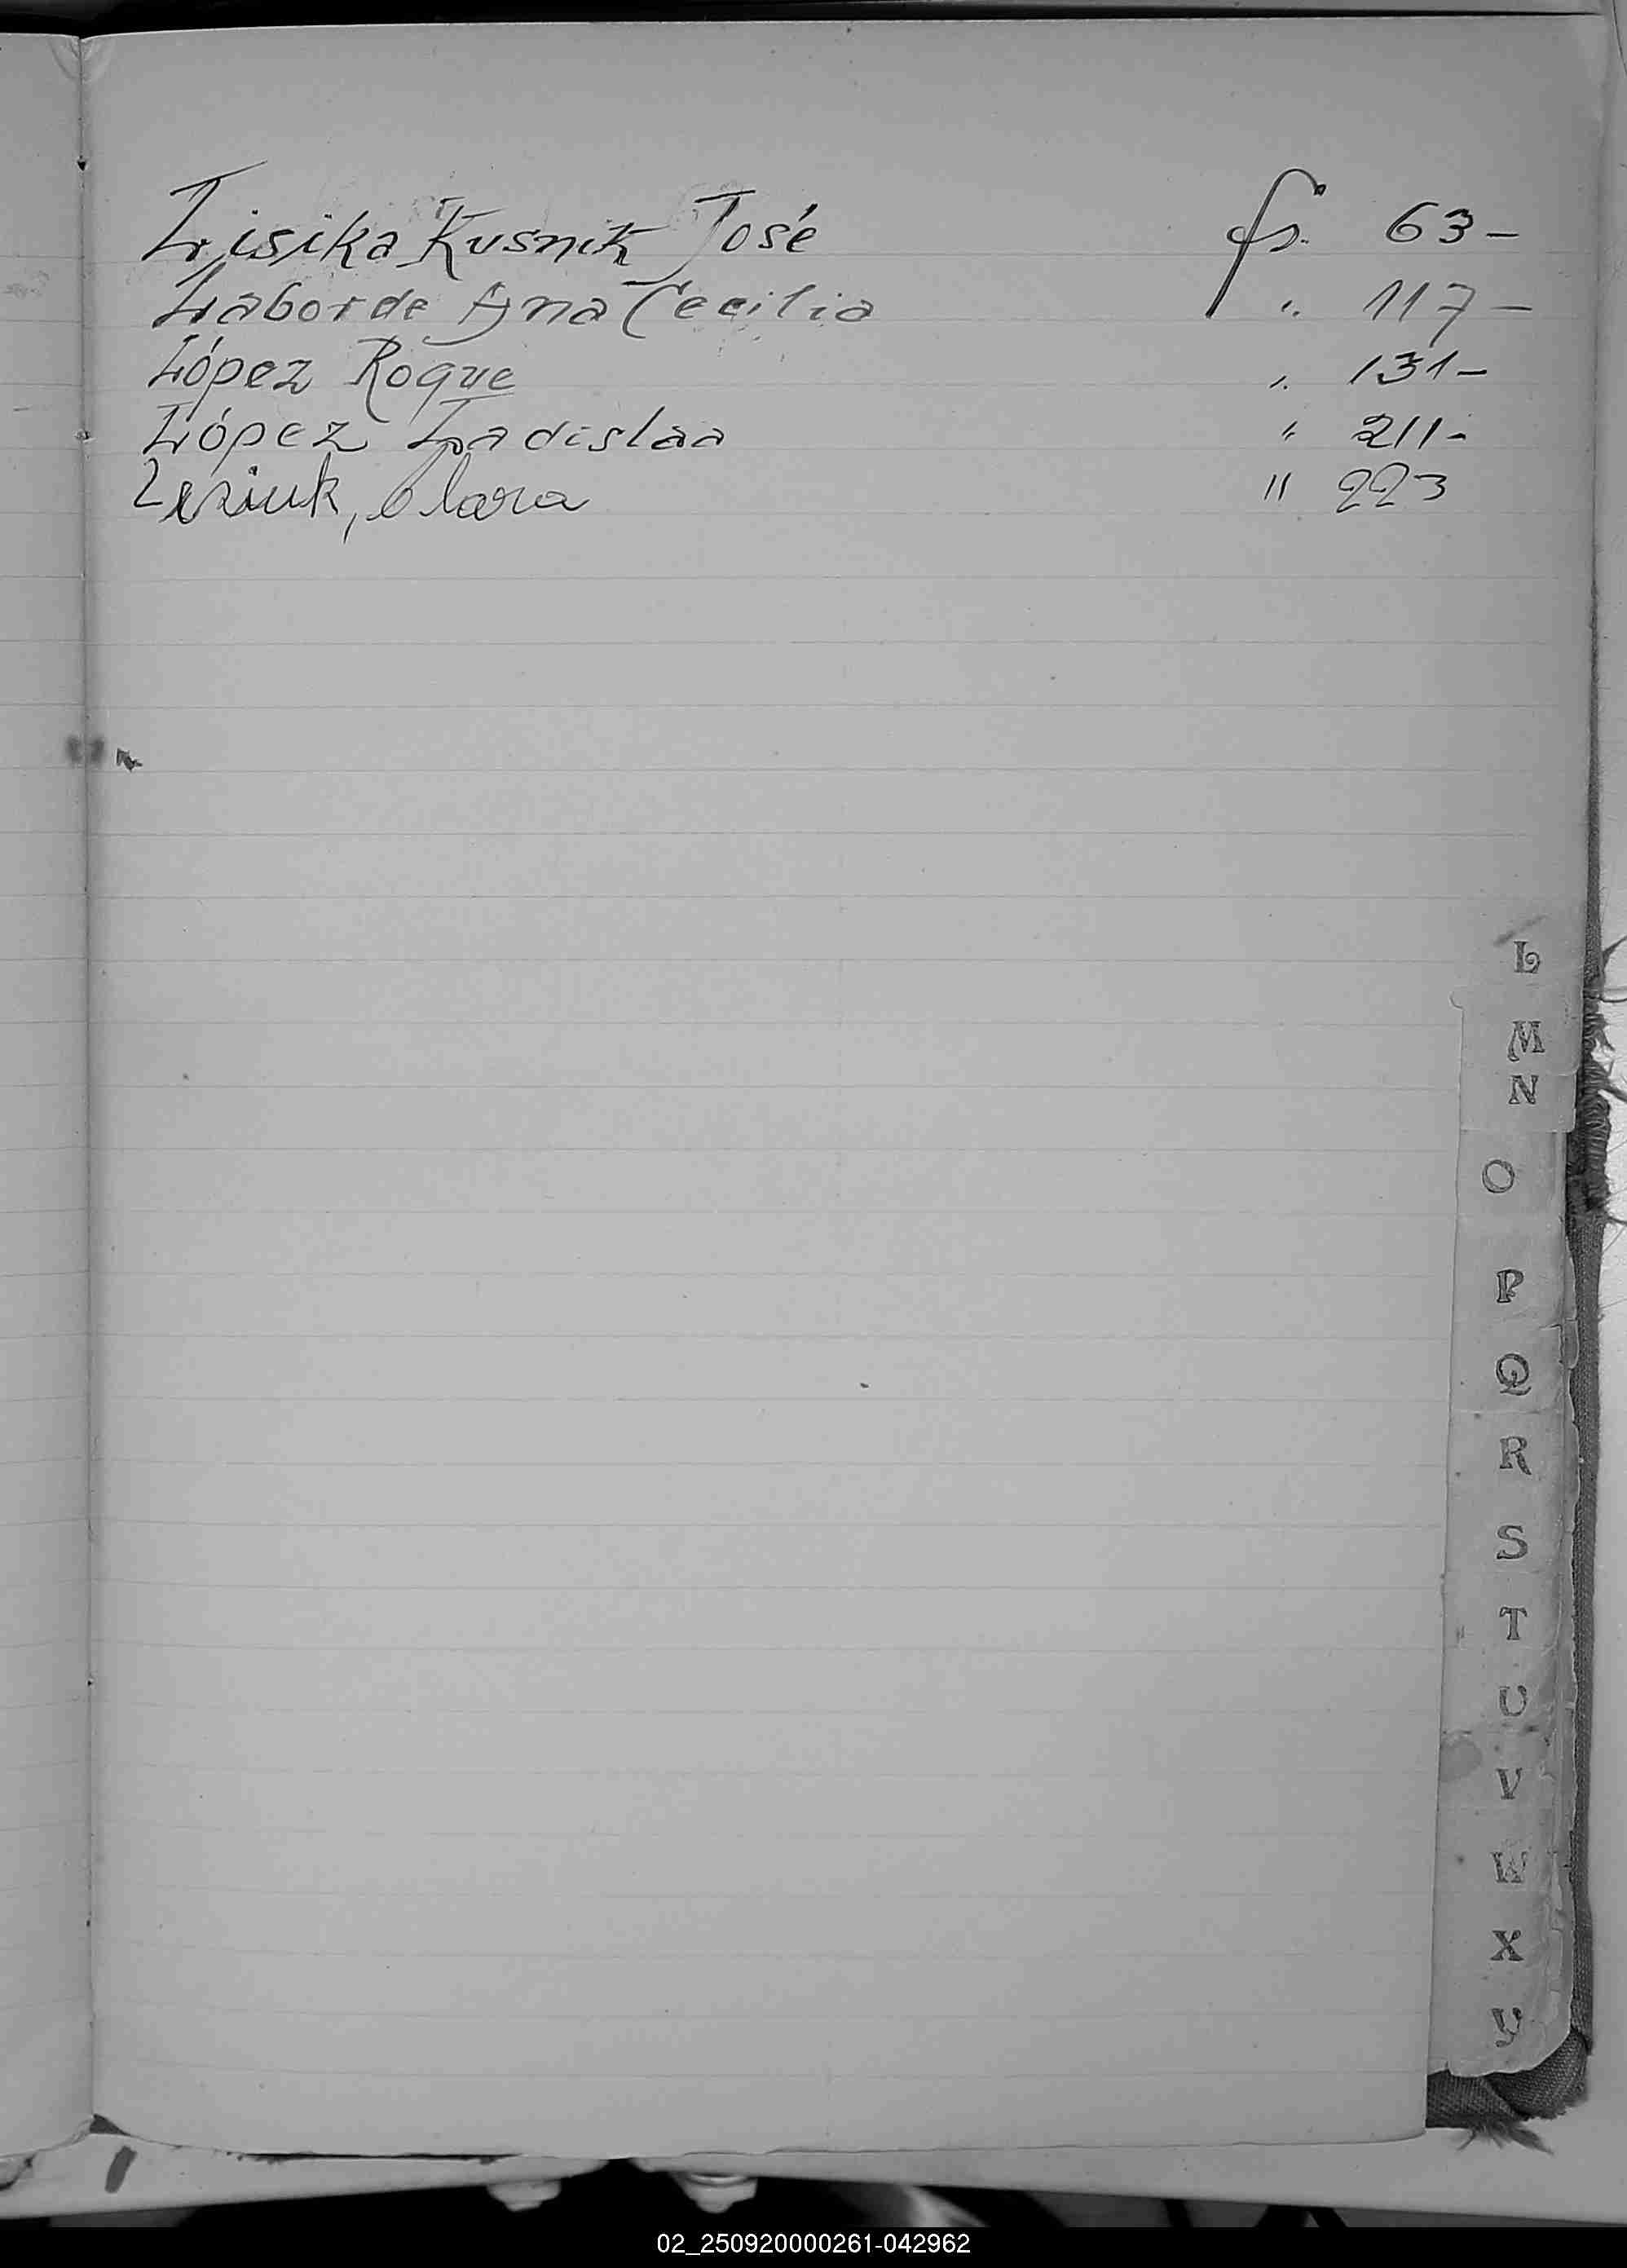 Lisika Kusnik José fs. 63-
Laborde Ana Cecilia " 117-
López Roque " 131-
López Ladislaa " 211-
Lesiuk, Clara " 223
L
M
N
O
P
Q
R
S
T
U
V
W
X
Y
02_250920000261-042962